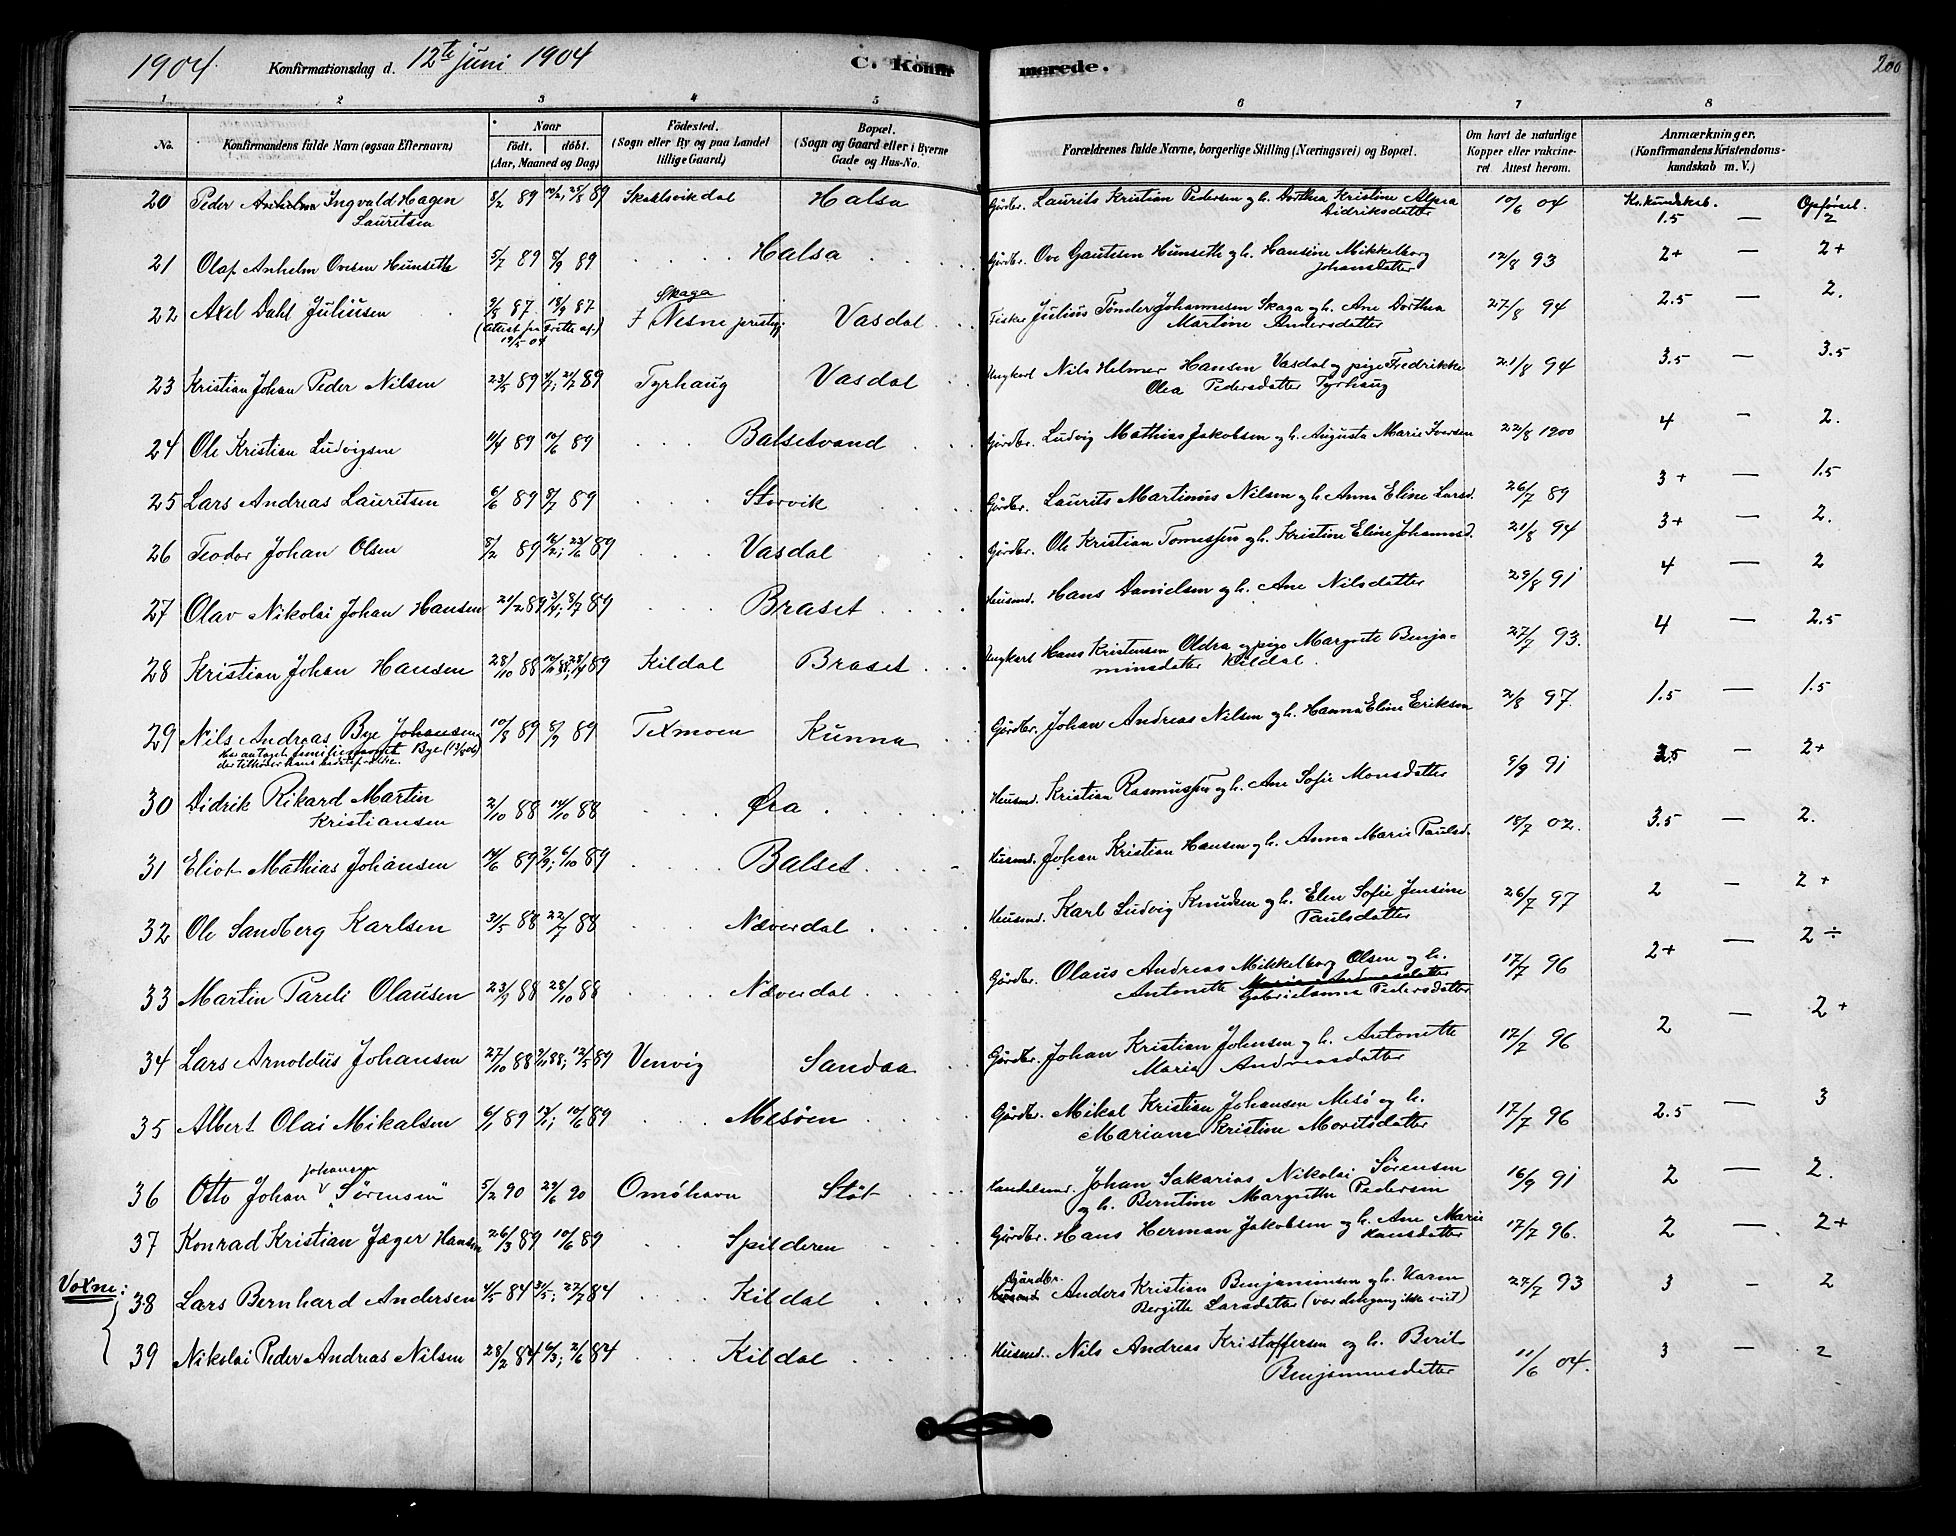 1904. Konfirmationsdag d. 12te juni 1904 C. Konfirmerede. 200
1 2 3 4 5 6 7 8
No. Konfirmandens fulde Navn (ogsaa Efternavn) Naar Födt. döbt. (Aar, Maaned og Dag) Födested. (Sogn eller By og paa Landet tillige Gaard) Bopæl. (Sogn og Gaard eller i Byerne Gade og Hus-No. Forældrenes fulde Navne, borgerlige Stilling (Næringsvei) og Bopæl. Om havt de naturlige Kopper eller vaccineret Attest herom. Anmærkninger, (Konfirmandens Kristendomskundskab m. V.)
Kr.kundskab. Opførsel.
20 Peder Anhelm Ingvald Hagen 8/2 89 Skaalsvikdal Halsa Gårdbr. Laurits Kristian Pedersen og h. Dorthea Kristine Alpea 10/6 04 1.5 — 2
Lauritsen Didriksdatter
21 Olaf Anhelm Ovesen Hunsette 5/7 89 8/9 89 Halsa Gårdbr. Ove Gautesen Hunseth og h. Hansine Mikkelborg 12/8 93 2+ — 2+
Johansdatter
22 Axel Dahl Juliusen 3/8 87 18/9 87 Skaga i Nesne prestegj. Vasdal Fisker Julius Tönder Johannesen Skaga og h. Ane Dorthea 27/8 94 2.5 — 2.
19/5 04 Martine Andersdatter
23 Kristian Johan Peder Nilsen 23/5 89 Tyrhaug Vasdal Ungkarl Nils Helmer Hansen Vasdal og pige Fredrikke 21/8 94 3.5 — 3.5
Olea Pedersdatter Tyrhaug
24 Ole Kristian Ludvigsen 11/4 89 10/6 89 Balsetvand Gårdbr. Ludvig Mathias Jakobsen og h. Augusta Marie Iversen 22/8 1900 4 — 2.
25 Lars Andreas Lauritsen 6/6 89 8/7 89 Storvik Gårdbr. Laurits Martinus Nilsen og h. Anna Eline Larsd. 26/7 89 3+ — 1.5
26 Teodor Johan Olsen 8/2 89 Vasdal Gårdbr. Ole Kristian Tomessen og h. Kristine Eline Johannesd. 21/8 94 3+ — 2.
27 Olav Nikolai Johan Hansen 21/2 89 3/4; 8/7 89 Braset Husmd. Hans Danielsen og h. Ane Nilsdatter 29/8 91 4 — 2
28 Kristian Johan Hansen 28/10 88 Kildal Braset Ungkarl Hans Kristensen Oldra og pige Margrete Benja- 27/7 93. 4 — 2.5
minsdatter Kildal.
29 Nils Andreas Bye Johansen 10/8 89 8/9 89 Texmoen Kunna Gårdbr. Johan Andreas Nilsen og h. Hanna Eline Eriksen 2/8 97. 1.5 — 1.5
Har antaget familienavnet Bye (13/8 06)
30 Didrik Rikard Martin 2/10 88 14/10 88 Øra Husmd. Kristian Rasmussen og h. Ane Sofie Monsdatter 9/9 91 3.5 — 2+
Kristiansen
31 Eliot Mathias Johansen 14/6 89 2/9; 6/10 89 Balset Husmd. Johan Kristian Hansen og h. Anna Marie Paulsd. 18/7 02. 3.5 — 2.
32 Ole Sandberg Karlsen 31/5 88 22/7 88 Næverdal Husmd. Karl Ludvig Knudsen og h. Elen Sofie Jensine 26/7 97 2 — 2+
Paulsdatter
33 Martin Pareli Olausen 23/9 88 28/10 88 Næverdal Gårdbr. Olaus Andreas Mikkelborg Olsen og h. 17/7 96 2+ — 2÷
Antonette Maria Andreasdatter
Gabrielanna Pedersdatter
34 Lars Arnoldus Johansen 27/10 88 Venvig Sandaa Gårdbr. Johan Kristian Johnsen og h. Antonette 17/7 96 2 — 2+
Maria Andreasdatter
35 Albert Olai Mikalsen 6/1 89 Mesöen Gårdbr. Mikal Kristian Johansen Mesö og h. 17/7 96 2.5 — 3
Mariane Kristine Moritsdatter
36 Otto Johan Johansen „Sörensen“ 5/2 90 29/6 90 Omöhavn Stöt Handelsmd. Johan Sakarias Nikolai Sörensen 16/9 91 2 — 2.
og h. Berntine Margrethe Pedersen
37 Konrad Kristian Jæger Hansen 26/3 89 10/6 89 Spilderen Gårdbr. Hans Herman Jakobsen og h. Ane Marie 17/7 96. 2 — 2+
Hansdatter
Voxne:
38 Lars Bernhard Andersen 4/5 84 Kildal Gårdbr. Husmd. Anders Kristian Benjaminsen og h. Karen 27/7 93 3 – 2
Bergitte Larsdatter (var dengang ikke viet)
39 Nikolai Peder Andreas Nilsen 28/2 84 Kildal Husmd. Nils Andreas Kristoffersen og h. Berit 11/6 04. 3 — 2
Benjaminsdatter